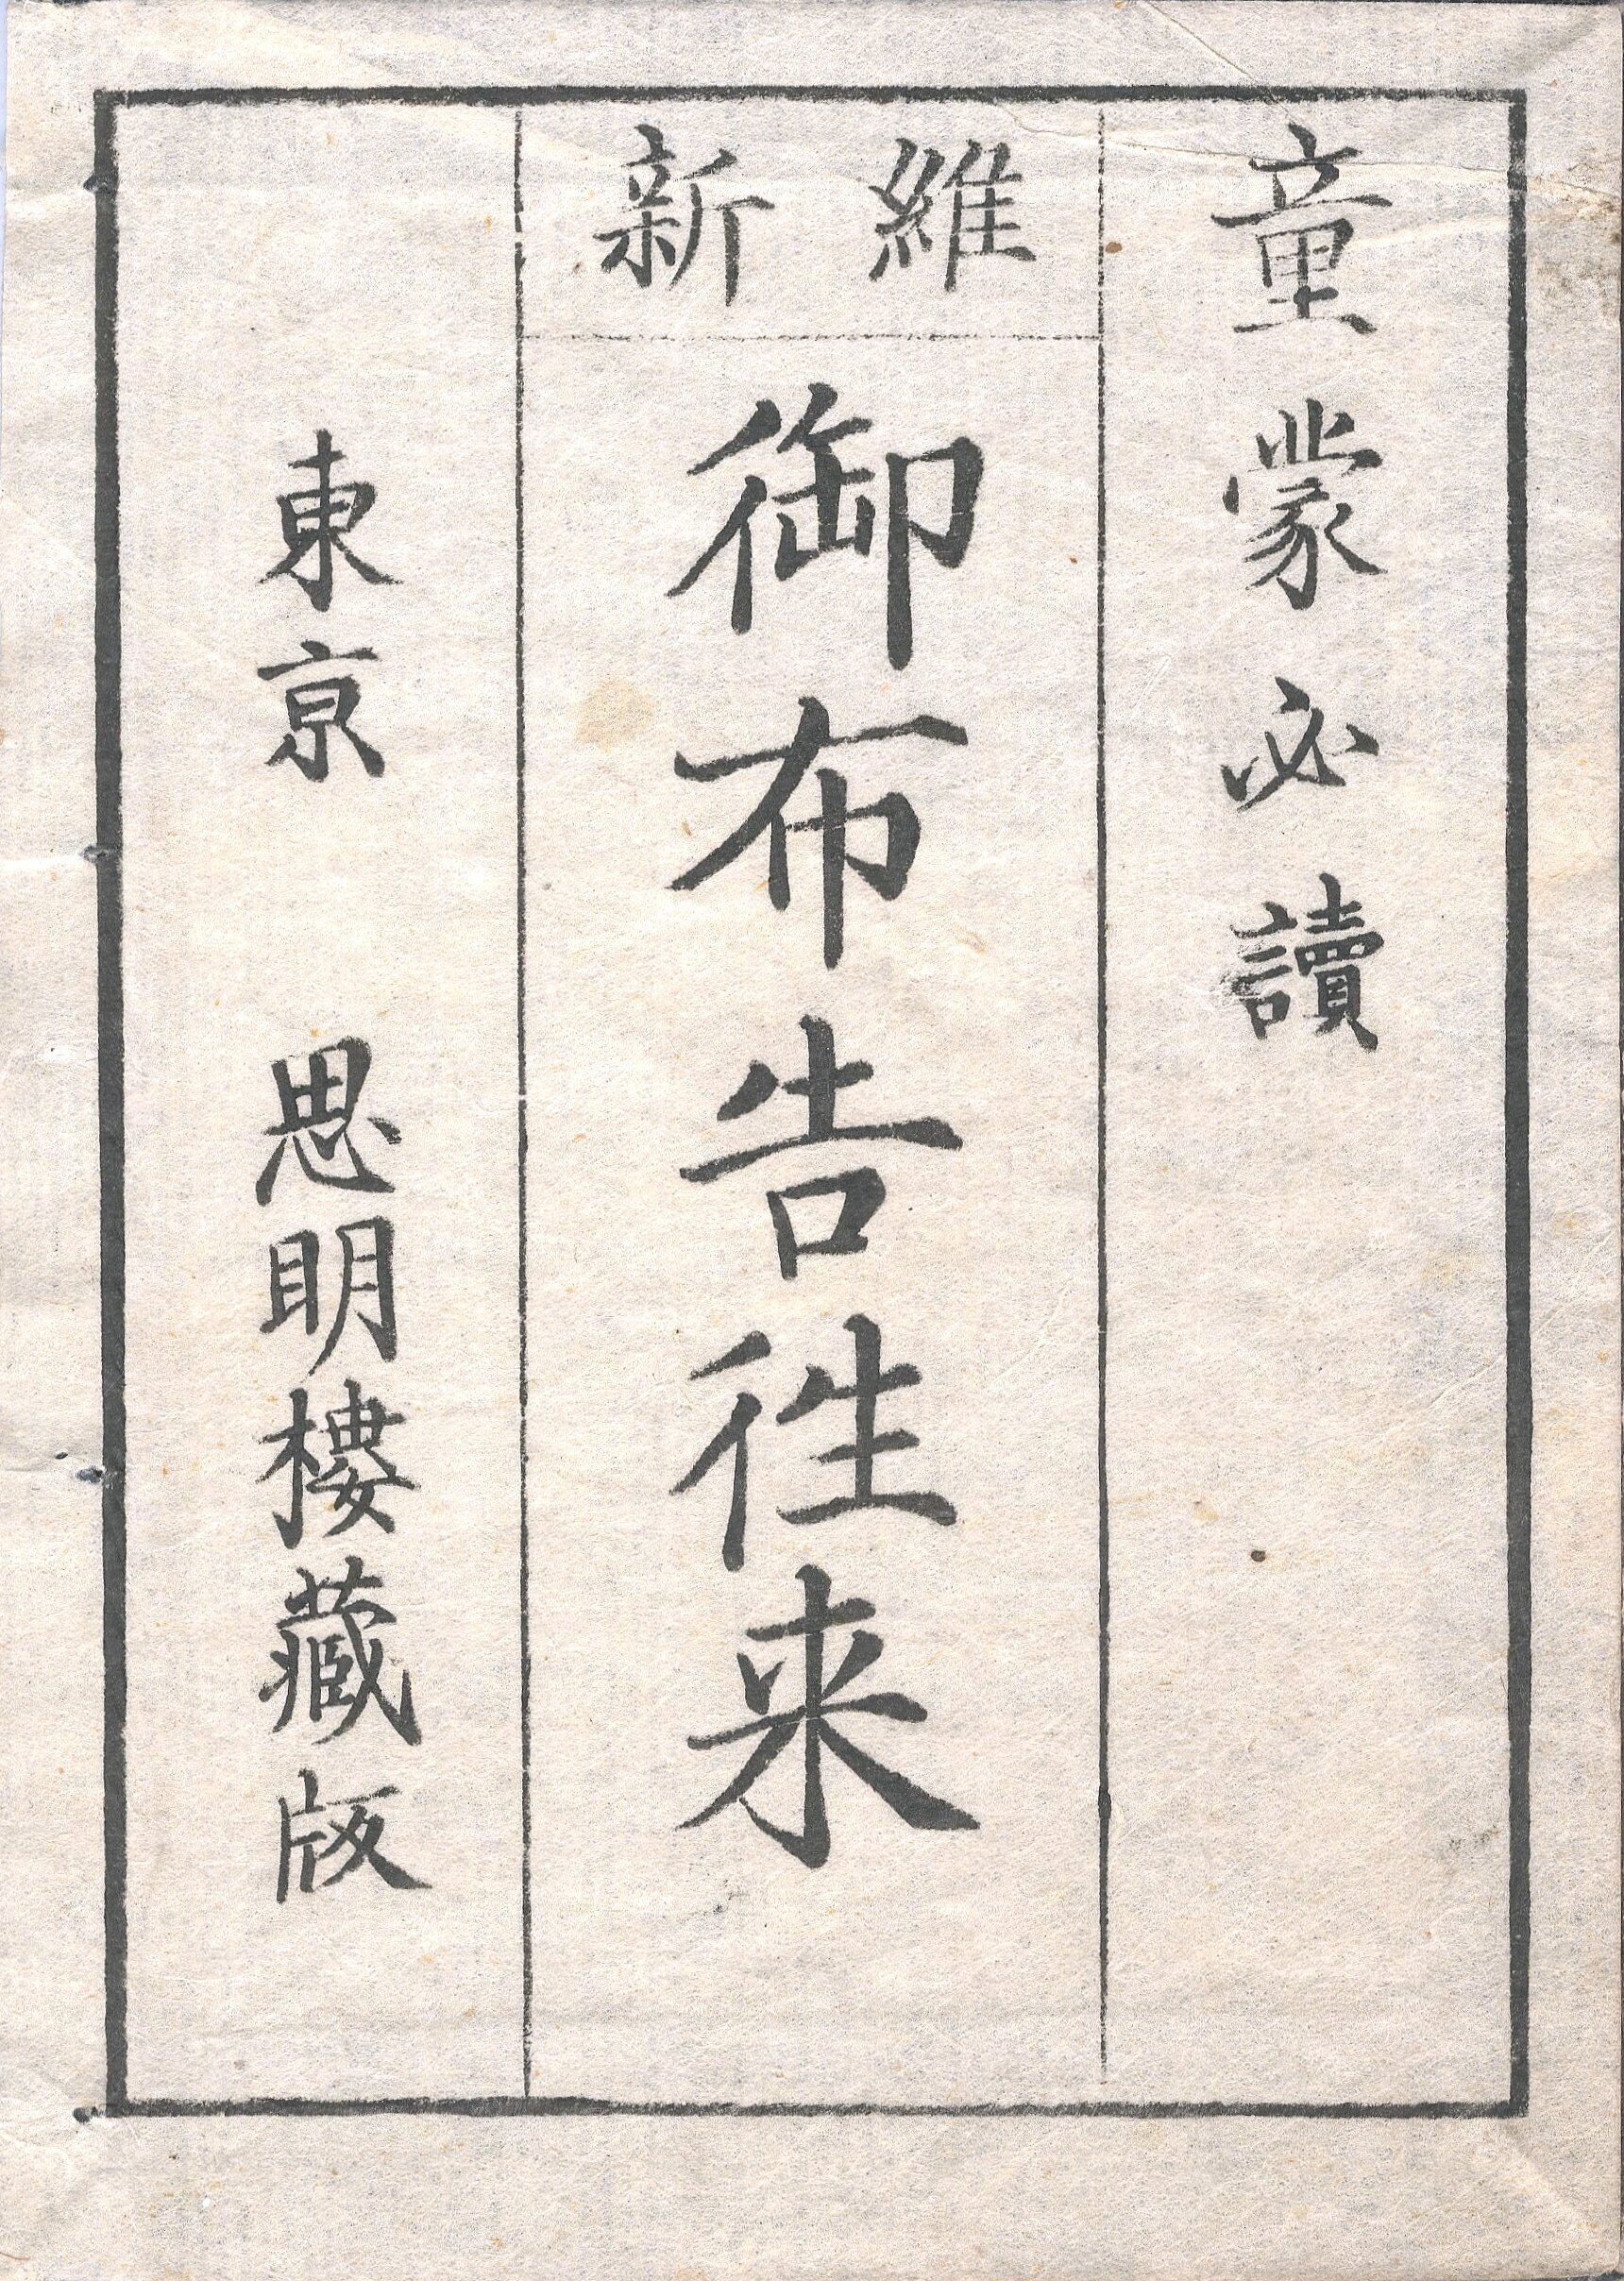 童蒙必讀
維新
御布告徃来
東京 思明樓藏版